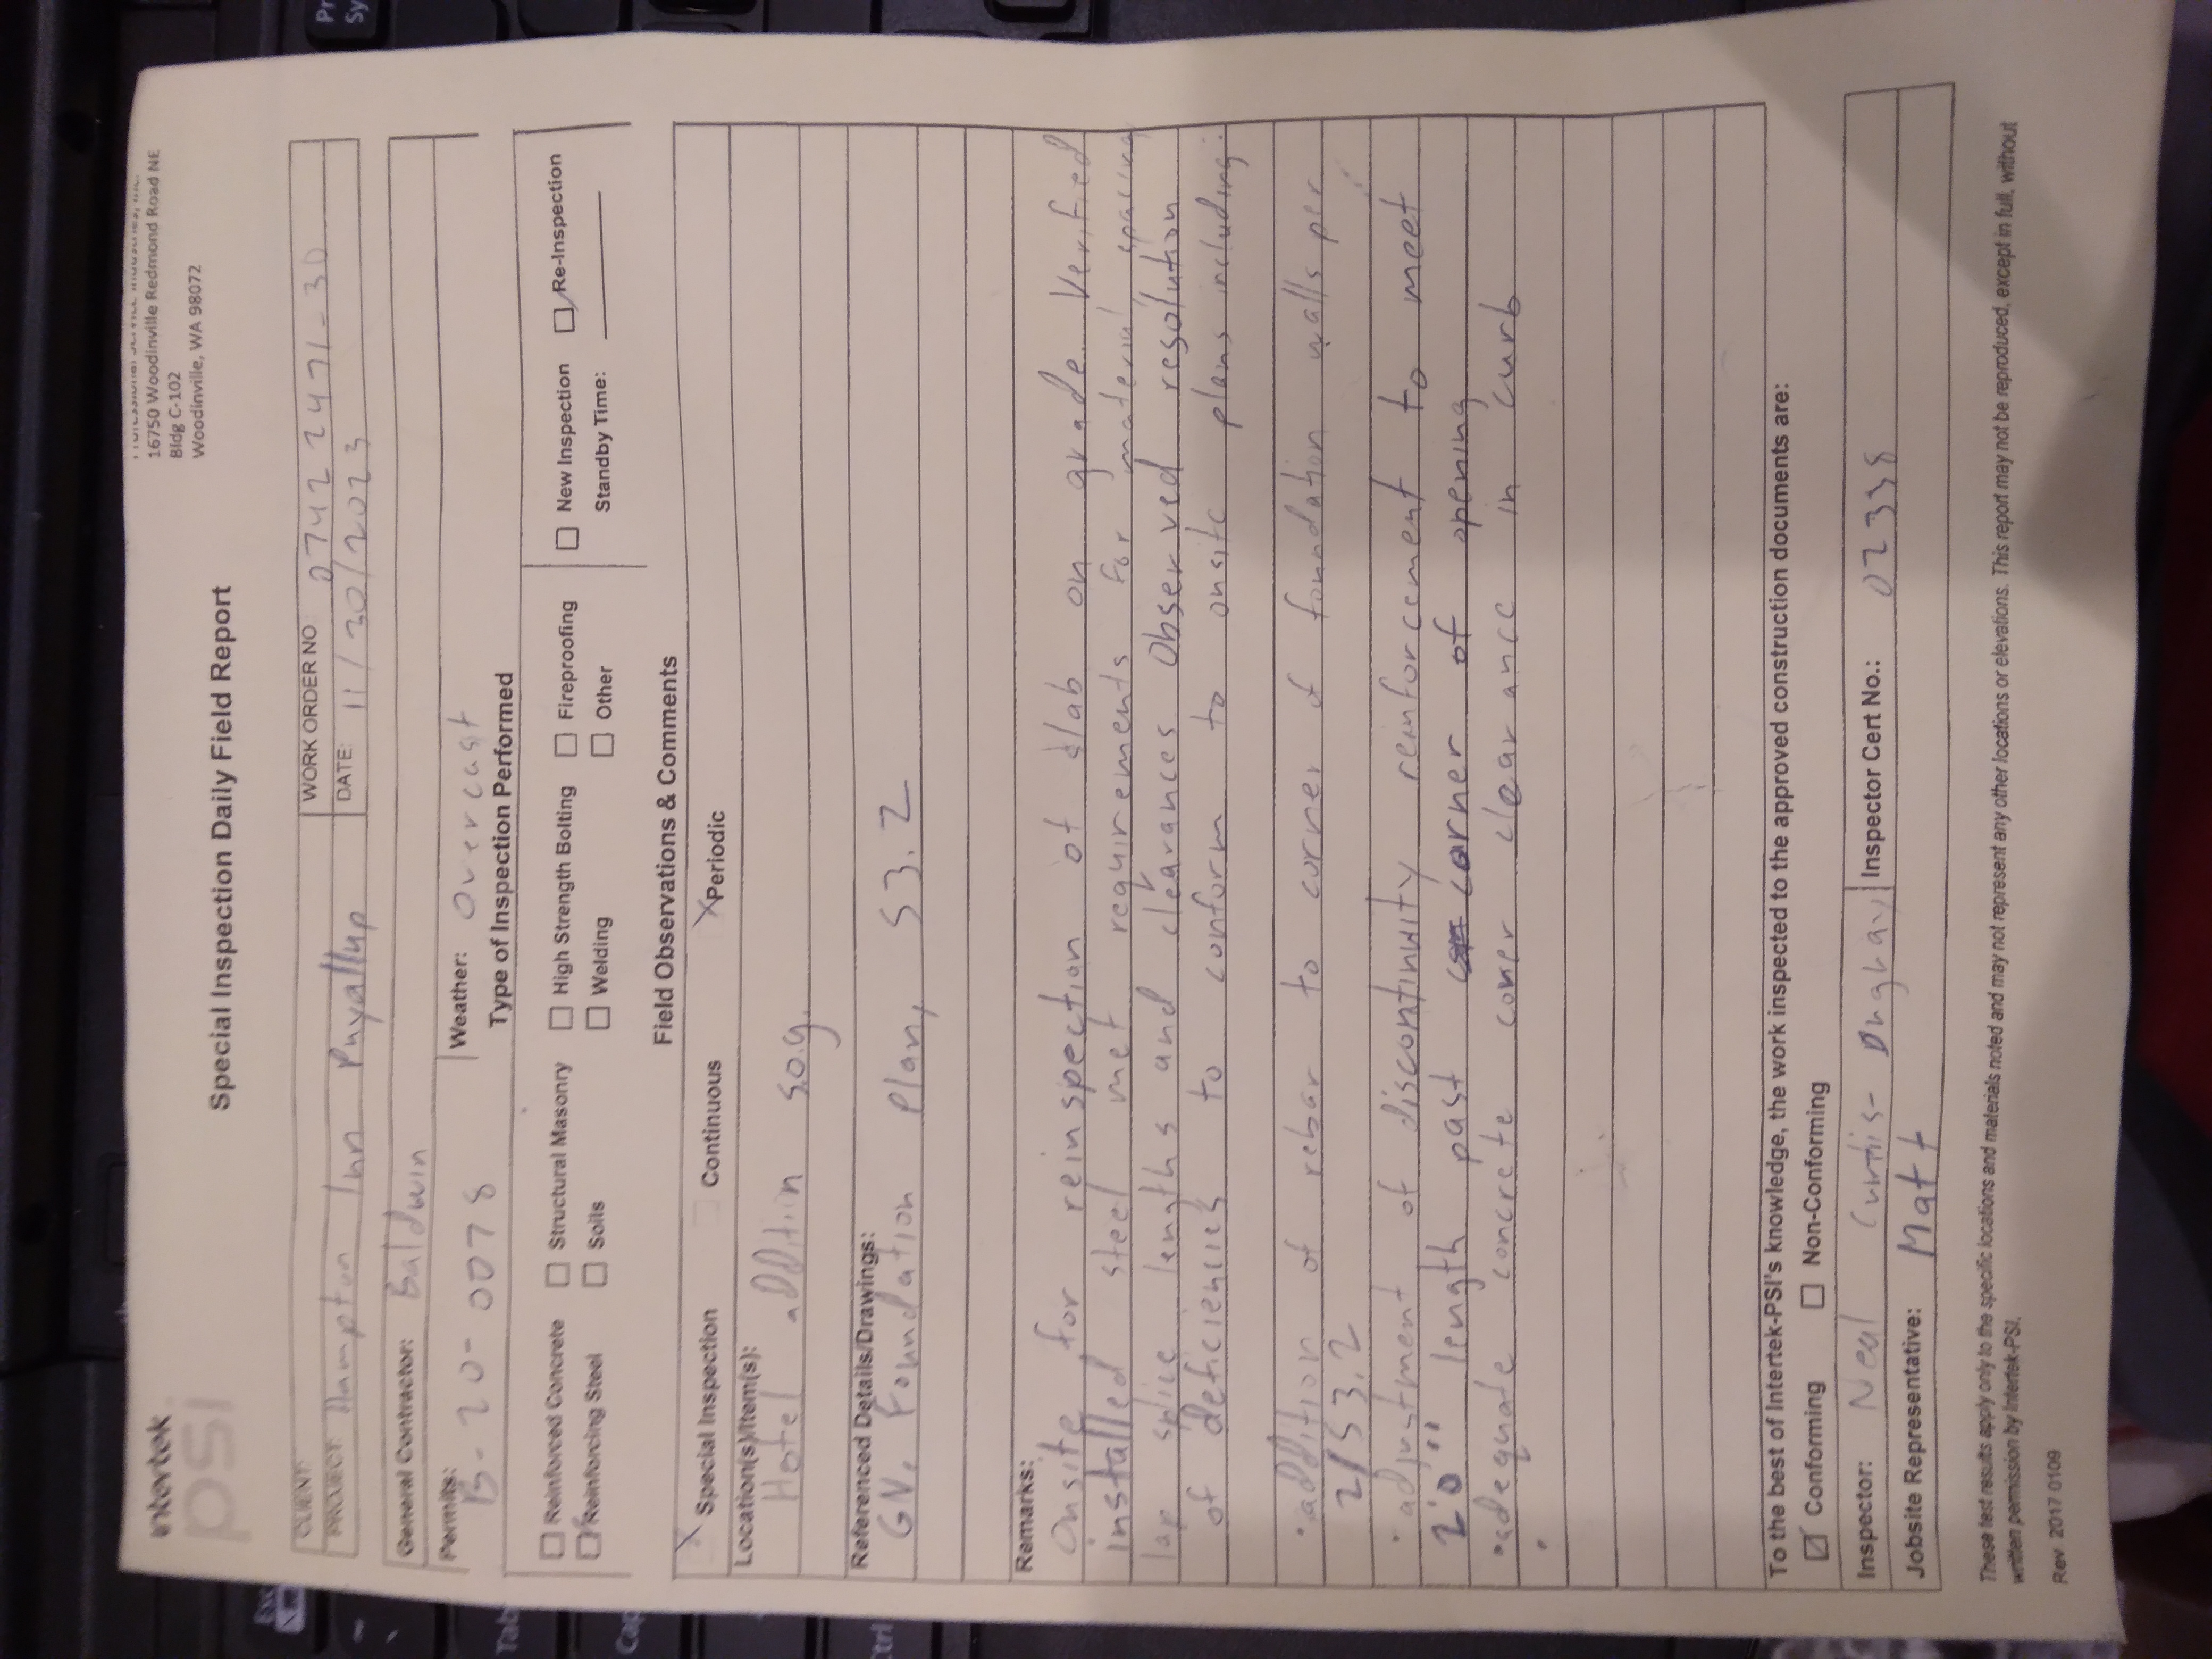 intertek
psi
16750 Woodinville Redmond Road NE
Bldg C-102
Woodinville, WA 98072
Special Inspection Daily Field Report
CLIENT:
WORK ORDER NO 07422471-30
PROJECT: Hampton Inn Puyallup
DATE: 11/30/2023
General Contractor: Baldwin
Permits: B-20-0078
Weather: Overcast
Type of Inspection Performed
☐ Reinforced Concrete ☐ Structural Masonry ☐ High Strength Bolting ☐ Fireproofing ☐ New Inspection ☑ Re-Inspection
☑ Reinforcing Steel ☐ Soils ☐ Welding ☐ Other Standby Time:
Field Observations & Comments
X Special Inspection ☐ Continuous X Periodic
Location(s)/Item(s):
Hotel addition S.O.G.
Referenced Details/Drawings:
GN, Foundation Plan, S3.2
Remarks:
Onsite for reinspection of slab on grade. Verified
installed steel met requirements for material, spacing
lap splice lengths and clearances. Observed resolution
of deficiencies to conform to onsite plans including:
• addition of rebar to corner of foundation walls per
2/S3.2
• adjustment of discontinuity reinforcement to meet
2'0" length past corner of opening
• adequate concrete cover clearance in curb
•
To the best of Intertek-PSI's knowledge, the work inspected to the approved construction documents are:
☑ Conforming ☐ Non-Conforming
Inspector: Neal Curtis-Dughay
Inspector Cert No.: 02338
Jobsite Representative: Matt
These test results apply only to the specific locations and materials noted and may not represent any other locations or elevations. This report may not be reproduced, except in full, without
written permission by Intertek-PSI.
Rev 2017 0109
Tab
Cap
Ctrl
Pr
Sy